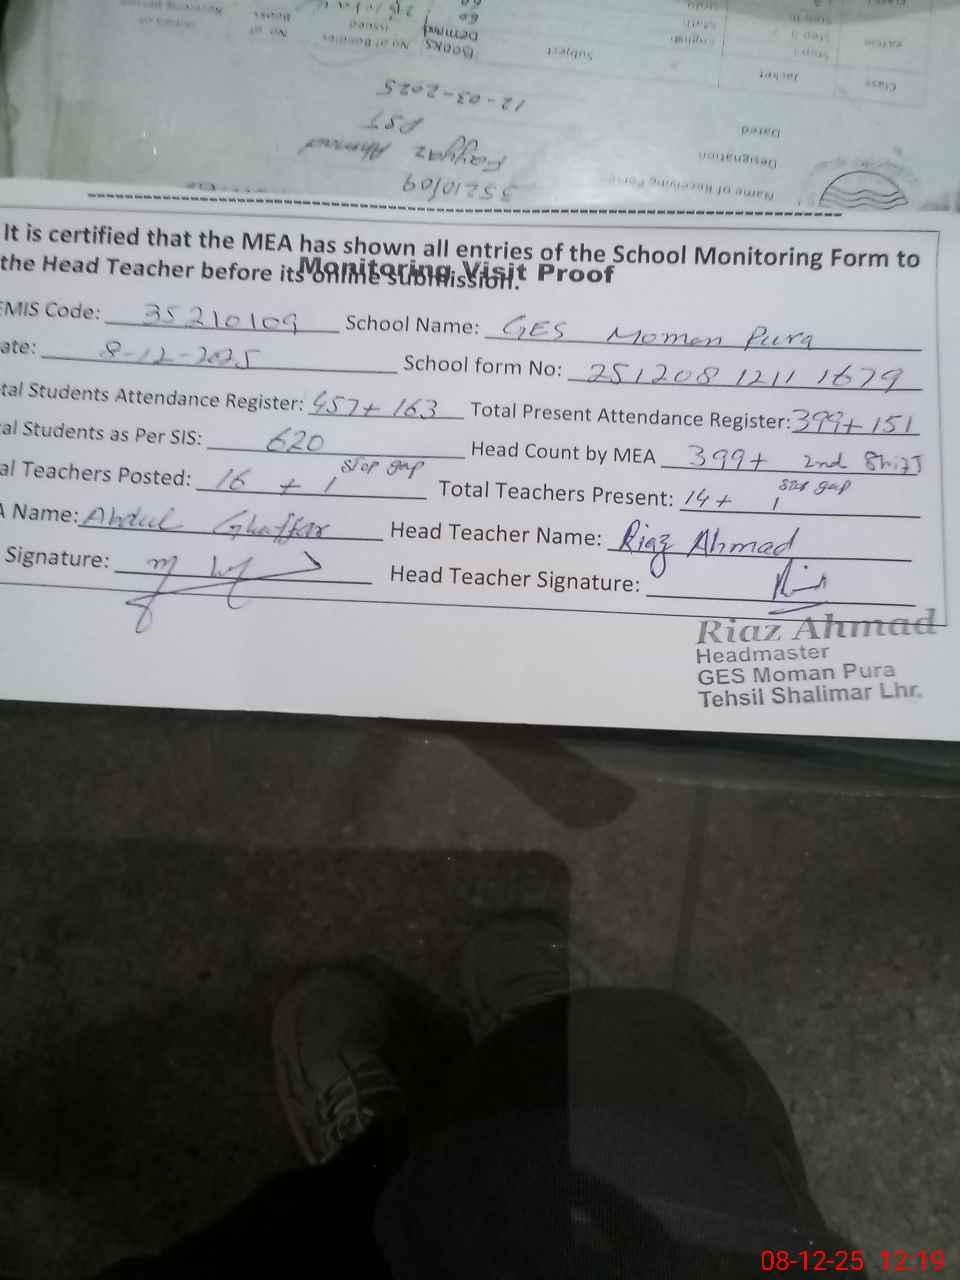 Class
Jacket
Subject
English
Math
Step I
Step II
Books
Demand
60
No of Booklies
issued
No of
Books
Name of Receiving Person
35210109
Designation
Fayyaz Ahmad
PST
Dated
12-03-2025
It is certified that the MEA has shown all entries of the School Monitoring Form to
the Head Teacher before its online submission.
Monitoring Visit Proof
EMIS Code: 35210109 School Name: GES Moman Pura
ate: 8-12-2025 School form No: 251208 1211 1679
tal Students Attendance Register: 457+163 Total Present Attendance Register: 399+151
al Students as Per SIS: 620 Head Count by MEA 399+ 2nd Shift
al Teachers Posted: 16 + 1 stop gap Total Teachers Present: 14+ 1 stop gap
A Name: Abdul Ghaffar Head Teacher Name: Riaz Ahmad
Signature: Head Teacher Signature:
Riaz Ahmad
Headmaster
GES Moman Pura
Tehsil Shalimar Lhr.
08-12-25 12:19